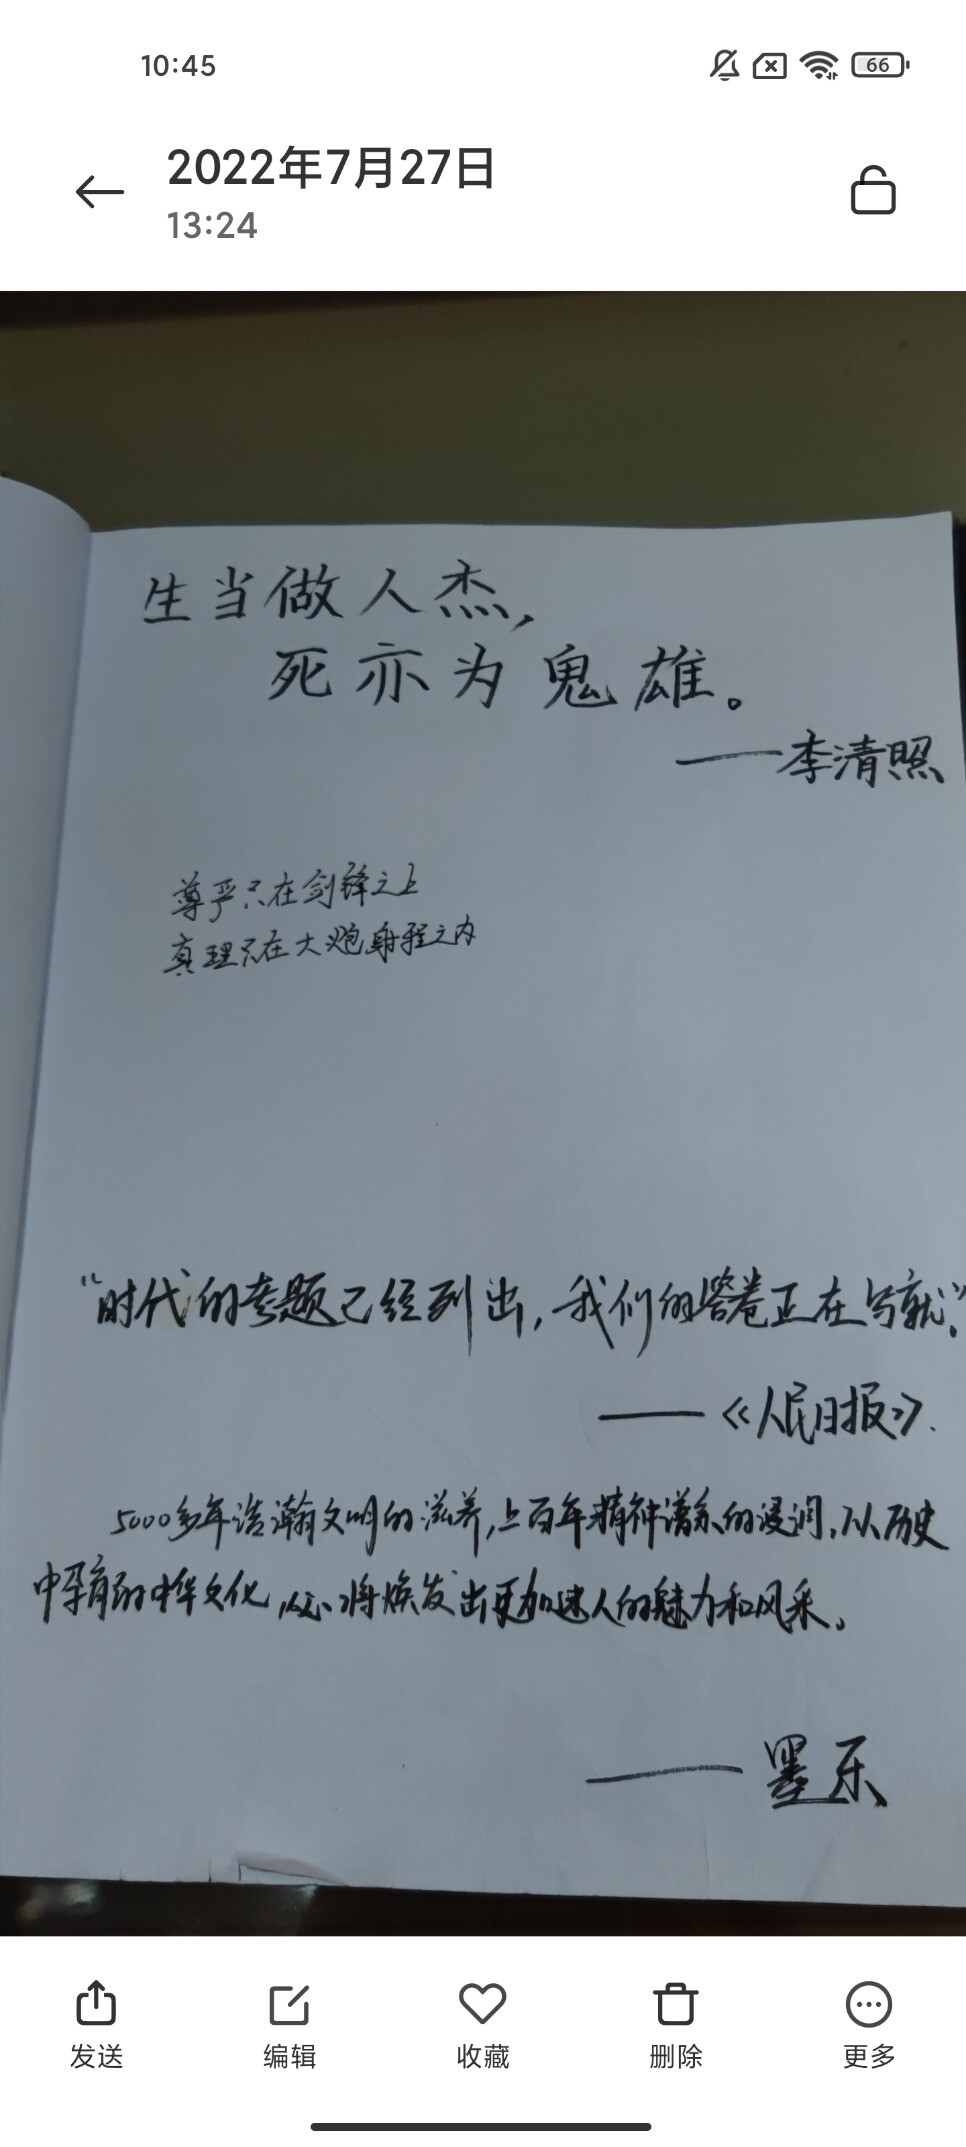 10:45
66
2022年7月27日
13:24
生当做人杰,
死亦为鬼雄。
——李清照
尊严只在剑锋之上
真理只在大炮射程之内
“时代的考题已经列出,我们的答卷正在写就。”
——《人民日报》.
5000多年浩瀚文明的滋养,上百年精神谱系的浸润,从历史
中孕育的中华文化,必将焕发出更加迷人的魅力和风采。
——墨乐
发送
编辑
收藏
删除
更多